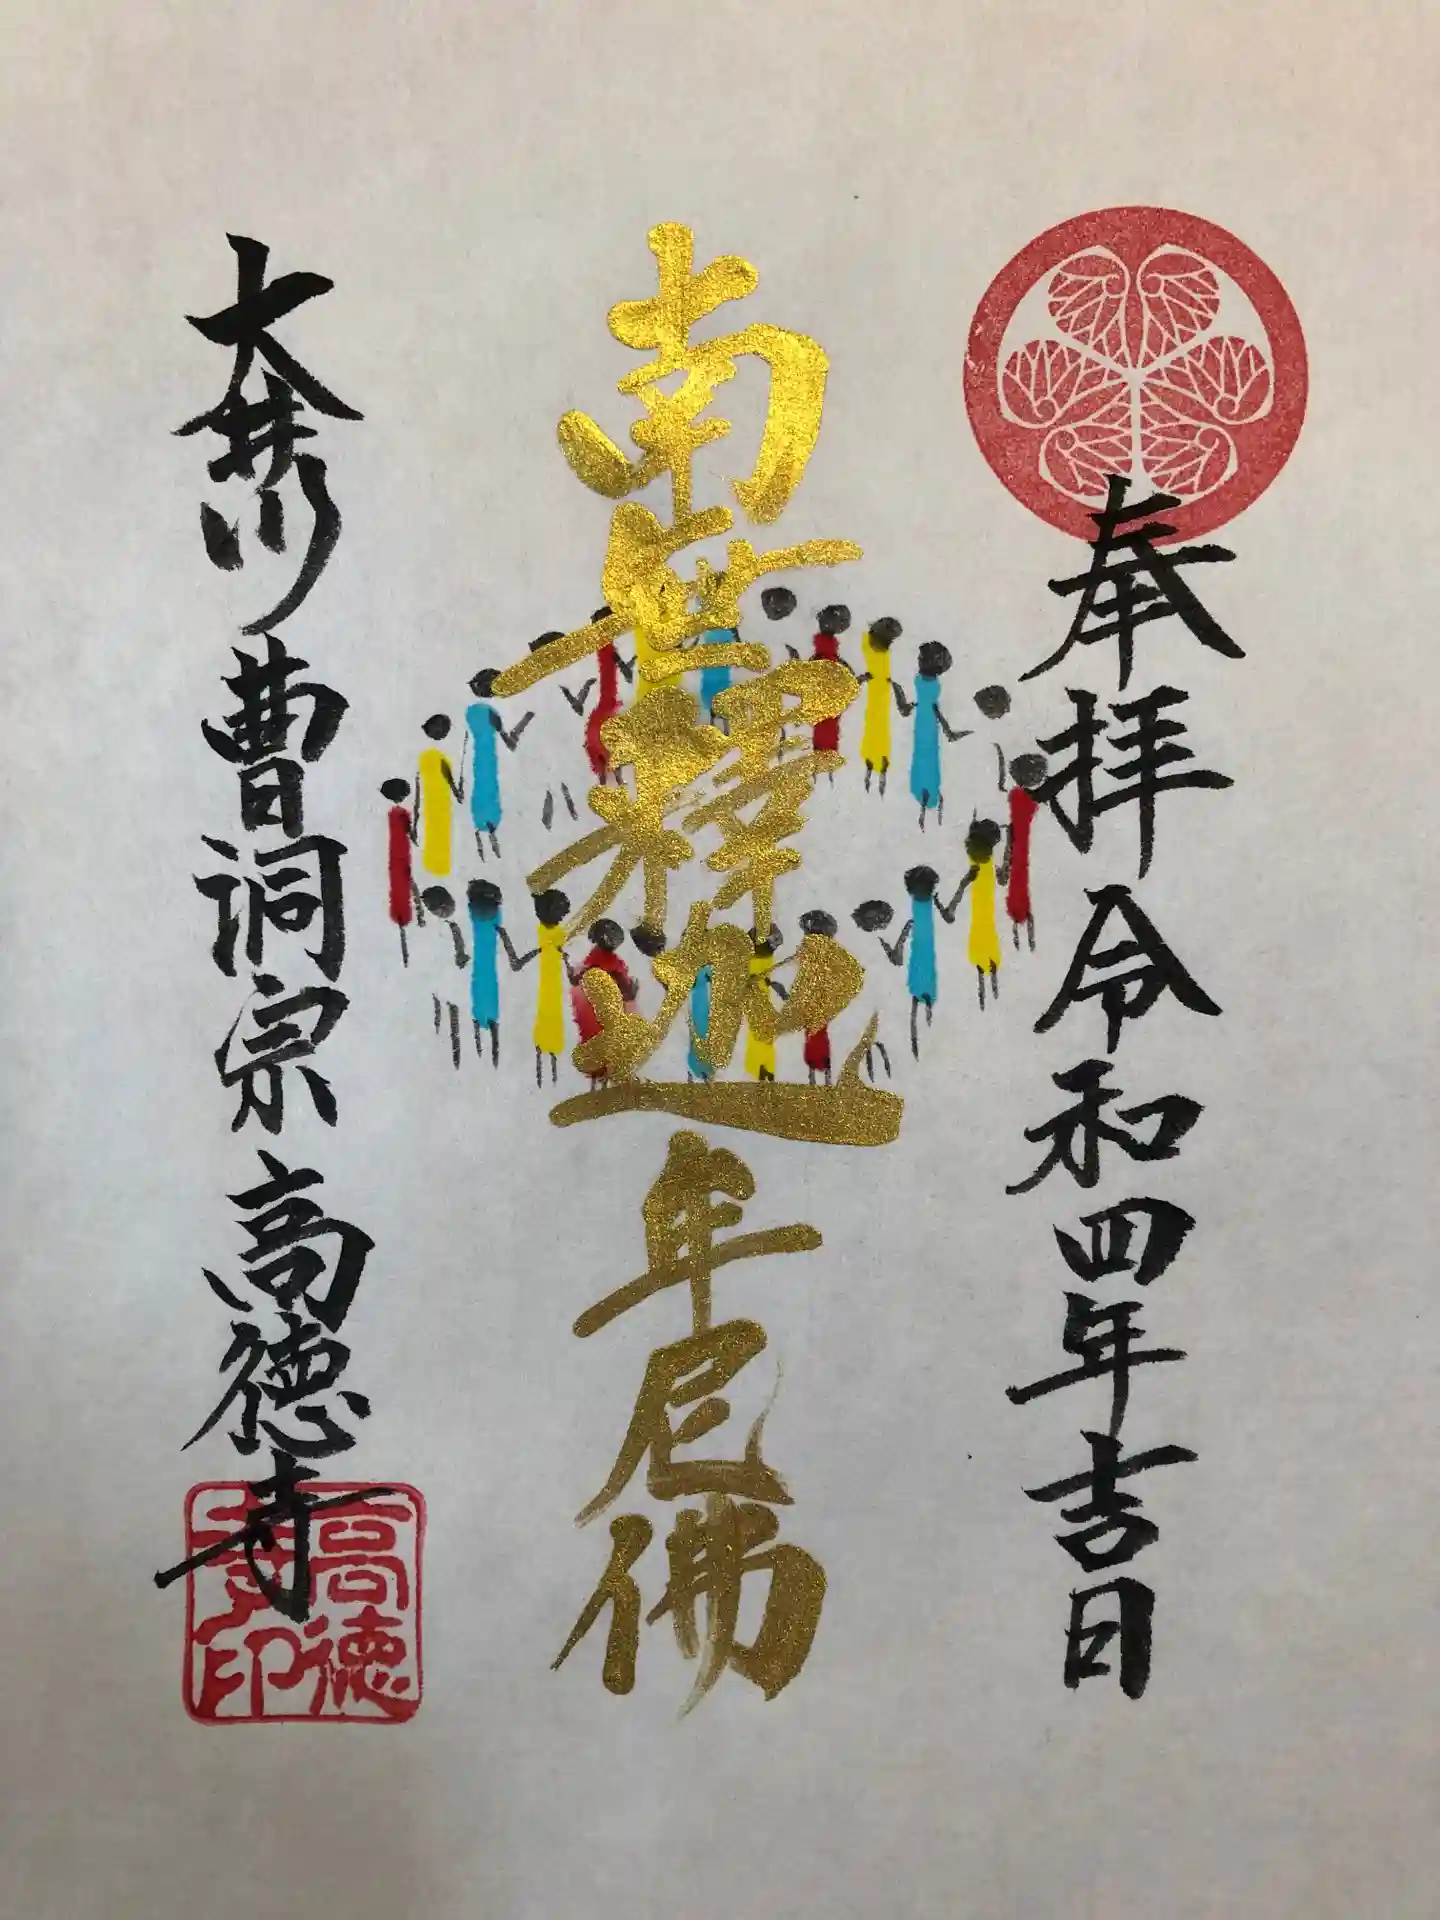 奉拝 令和四年吉日
南無釋迦牟尼佛
大井川 曹洞宗 高徳寺
高徳
寺印